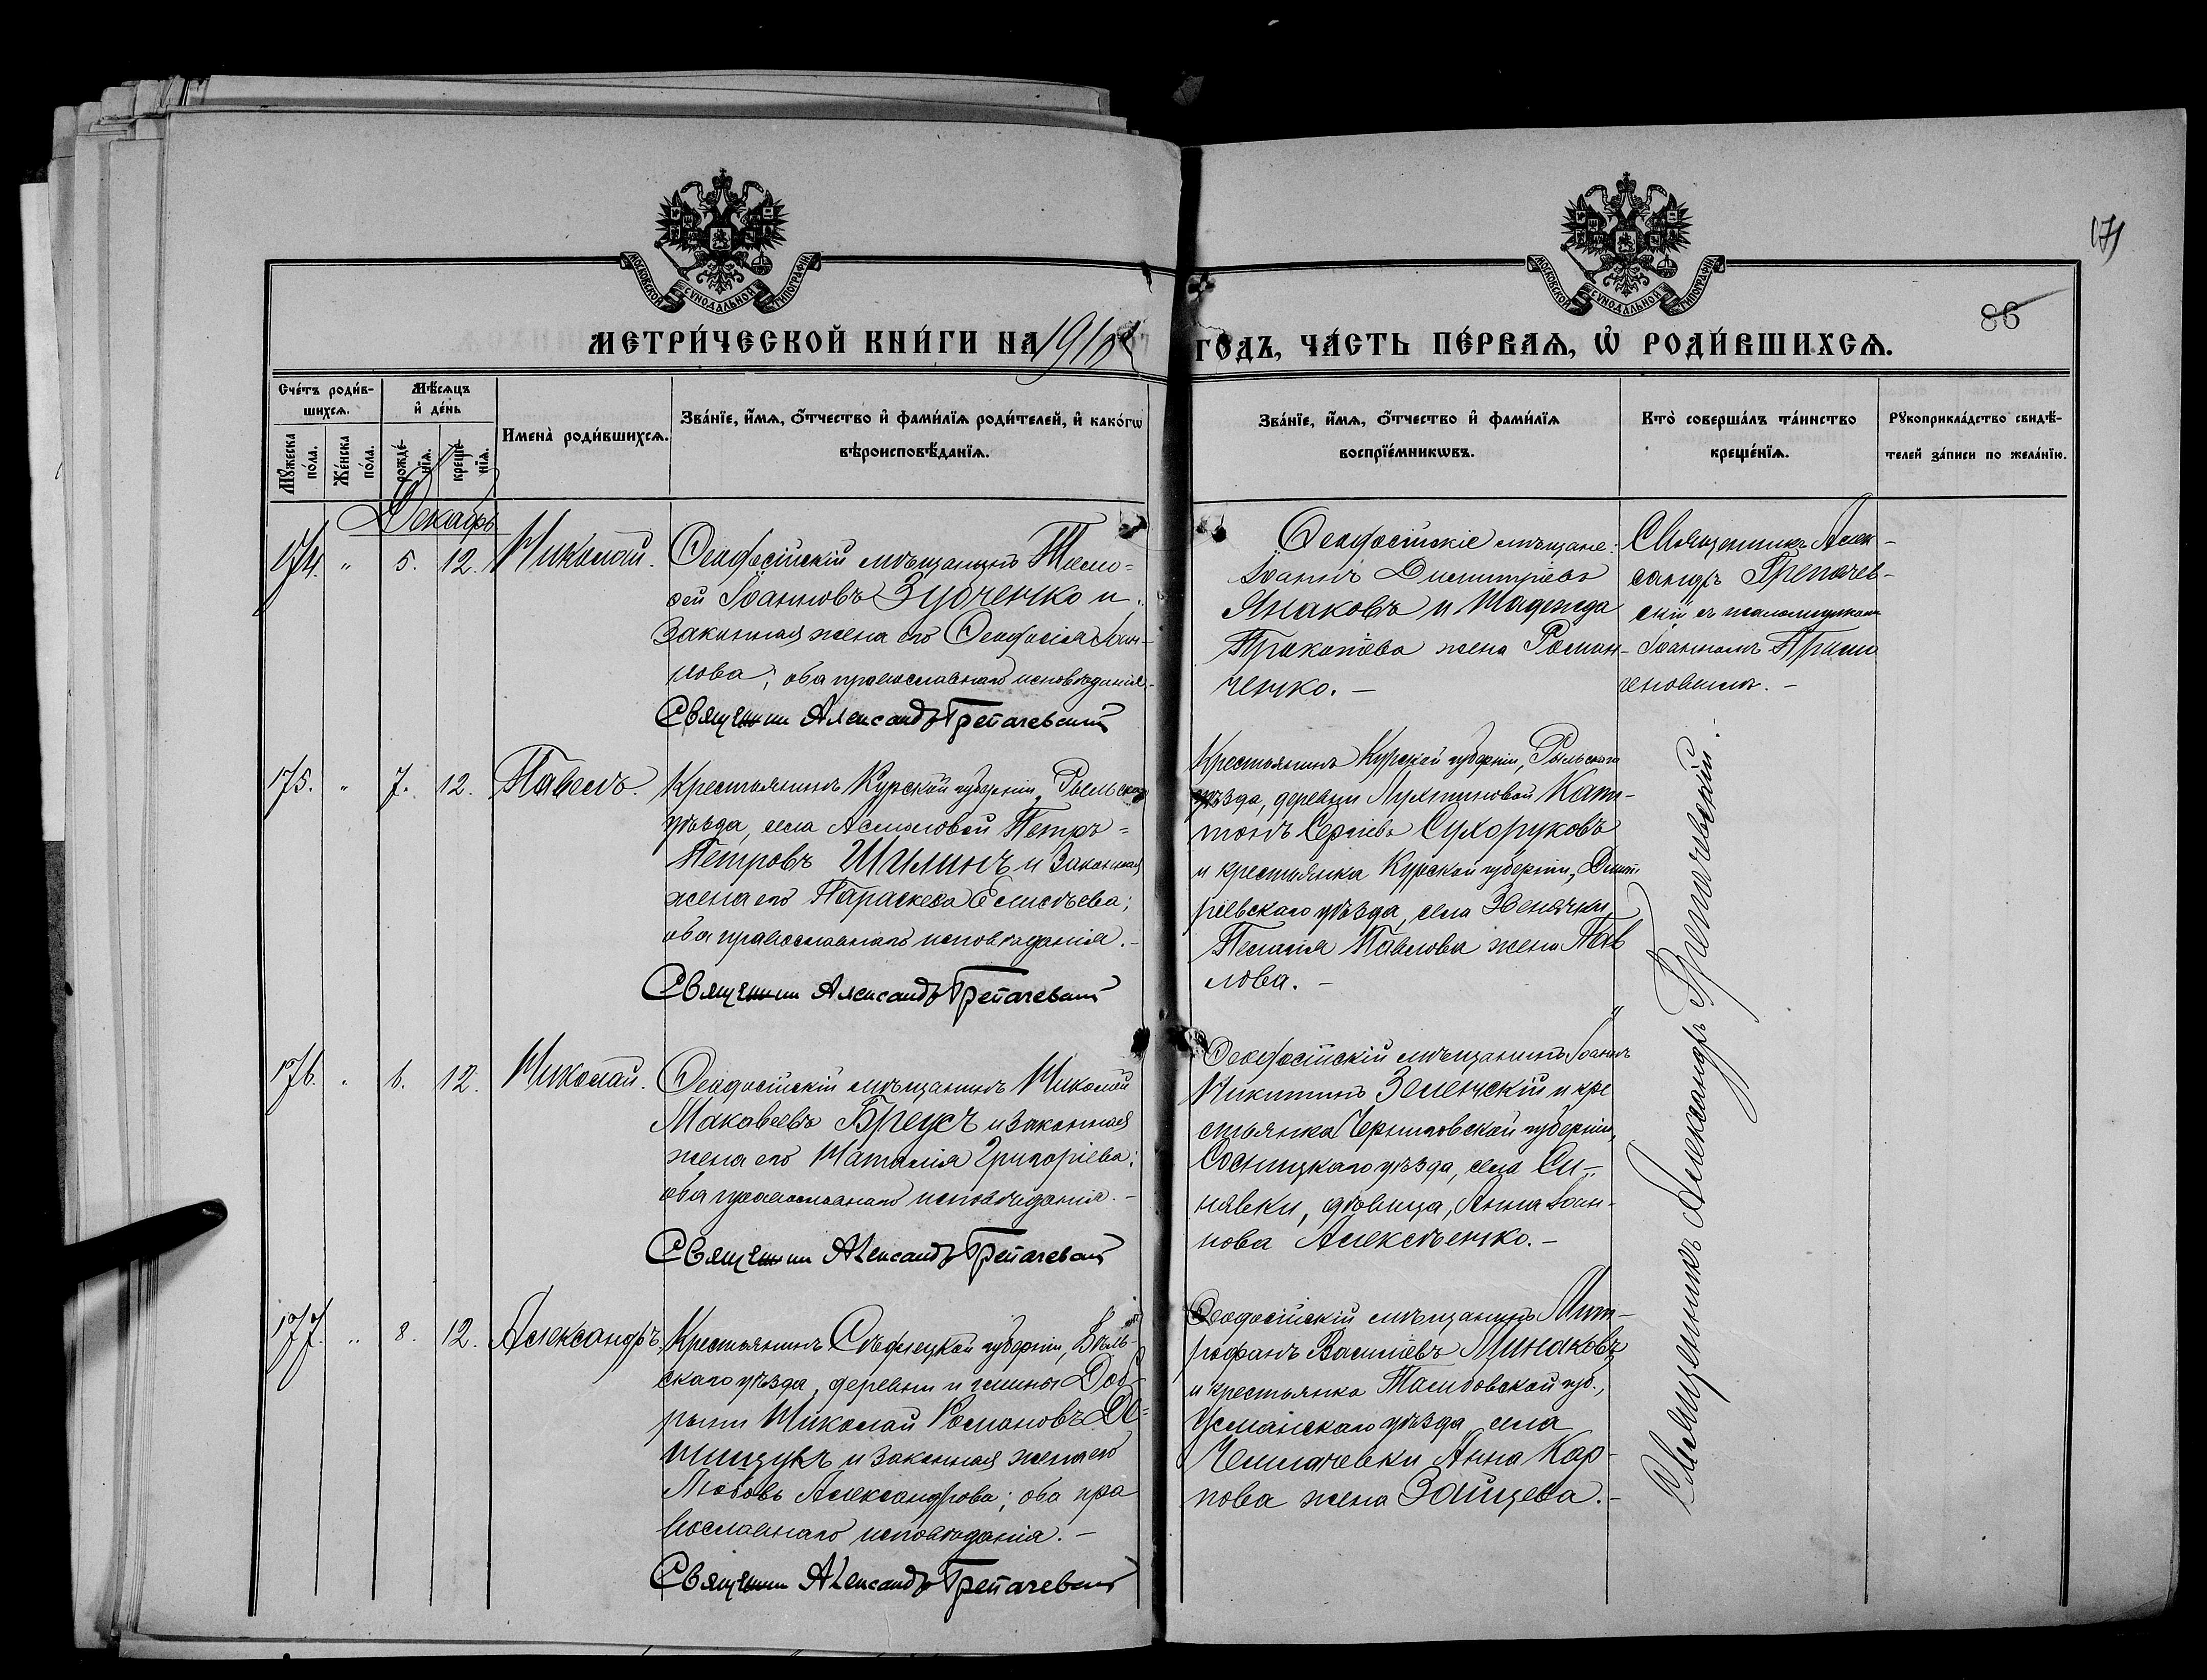 171
86
МОСКОВСКОЙ СУНОДАЛЬНОЙ ТИПОГРАФІИ
МОСКОВСКОЙ СУНОДАЛЬНОЙ ТИПОГРАФІИ
МЕТРИ́ЧЕСКОЙ КНИ́ГИ НА 1910 ГО́ДЪ, ЧА́СТЬ ПЕ́РВАѦ, Ѡ҆ РОДИ́ВШИХСѦ.
Сче́тъ роди́в-
шихсѧ.
Мꙋ́жеска по́ла.
Же́нска по́ла.
Мѣ́сѧцъ
и҆ де́нь
рожде́-
нїѧ.
креще́-
нїѧ.
Имена̀ роди́вшихсѧ.
Зва́нїе, и҆́мѧ, ѻ҆́тчество и҆ фами́лїѧ роди́телей, и҆ како́гѡ
вѣроисповѣ́данїѧ.
Зва́нїе, и҆́мѧ, ѻ҆́тчество и҆ фами́лїѧ
воспрїе́мникѡвъ.
Кто̀ соверша́лъ та́инство
креще́нїѧ.
Рꙋкоприкла́дство свидѣ́-
телей за́писи по жела́нїю.
Декабрь
174. " 5. 12. Николай.
Ѳеодосійскій мѣщанинъ Тимо=
ѳей Іоанновъ Зубченко и
законная жена его Ѳеодосія Іоан-
нова; оба православнаго исповѣданія.
Священник Александръ Трепачевскій
Ѳеодосійскіе мѣщане:
Іоаннъ Димитріевъ
Янаковъ и Надежда
Прокопіева жена Роман-
ченко. -
Священникъ Алек-
сандръ Трепачев-
скій съ псаломщикомъ
Іоанномъ
175. " 7. 12. Павелъ.
Крестьянинъ Курской губерніи, Рыльскаго
уѣзда, села Асмоловой Петръ=
Петровъ Шилинъ и законная
жена его Параскева Елисѣева;
оба православнаго исповѣданія. -
Священник Александръ Трепачевскій
Крестьянинъ Курской губерніи, Рыльскаго
уѣзда, деревни
Сергіевъ Сухоруковъ
и крестьянка Курской губерніи, Димит-
ріевскаго уѣзда, села Звенячки
Пелагія Павлова жена Пав
лова. -
176. " 6. 12. Николай.
Ѳеодосійскій мѣщанинъ Николай
Маковеевъ Бреусъ и законная
жена его Наталія Григоріева;
оба православнаго исповѣданія. -
Священник Александръ Трепачевскій
Ѳеодосійскій мѣщанинъ Іоаннъ
Никитинъ Зеленскій и кре
стьянка Черниговской губерніи,
Сосницкаго уѣзда, села Си-
нявки, дѣвица, Анна Іоан-
нова Алексѣенко. -
177. " 8. 12. Александръ.
Крестьянинъ Сѣдлецкой губерніи, Бѣль-
скаго уѣзда, деревни и гмины Доб-
рыни Николай Романовъ Де=
мищукъ и законная жена его
Любовь Александрова; оба пра
вославнаго исповѣданія. -
Священник Александръ Трепачевскій
Ѳеодосійскій мѣщанинъ Мит-
рофанъ Василіевъ Минаковъ
и крестьянка Тамбовской губ.,
Усманскаго уѣзда села
Чемлачевки Анна Кар-
пова жена Зайцева. -
Священникъ Александръ Трепачевскій.